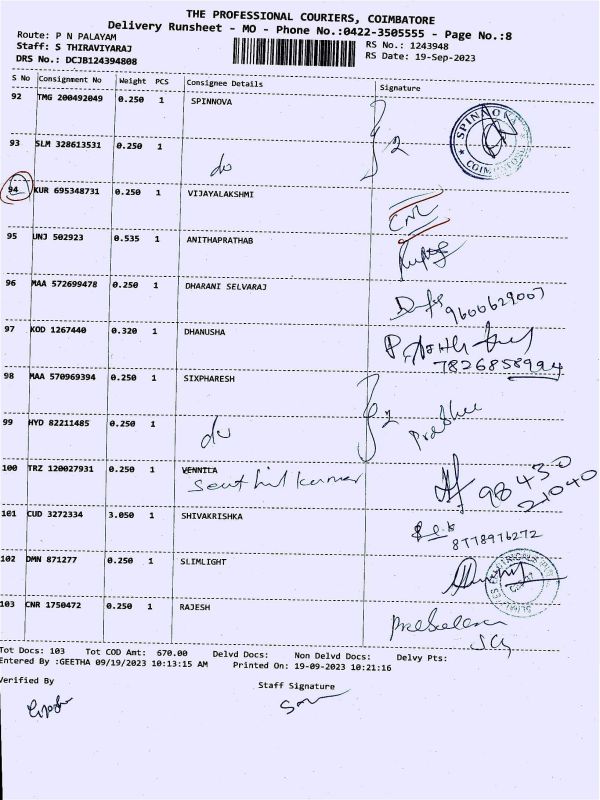 THE PROFESSIONAL COURIERS, COIMBATORE
Delivery Runsheet - MO - Phone No.:0422-3505555 - Page No.:8
Route: P N PALAYAM
Staff: S THIRAVIYARAJ
RS No.: 1243948
DRS No.: DCJB124394808
RS Date: 19-Sep-2023
S No Consignment No Weight PCS Consignee Details Signature
92 TMG 200492049 0.250 1 SPINNOVA
2
SPINNOVA COIMBATORE
93 SLM 328613531 0.250 1
do
94 KUR 695348731 0.250 1 VIJAYALAKSHMI
CNR
95 UNJ 502923 0.535 1 ANITHAPRATHAB
96 MAA 572699478 0.250 1 DHARANI SELVARAJ
9600629007
97 KOD 1267440 0.320 1 DHANUSHA
7826858994
98 MAA 570969394 0.250 1 SIXPHARESH
2
99 HYD 82211485 0.250 1
do
100 TRZ 120027931 0.250 1 VENNILA
Senthil kumar
98430
21040
101 CUD 3272334 3.050 1 SHIVAKRISHKA
8778976272
102 DMN 871277 0.250 1 SLIMLIGHT
103 CNR 1750472 0.250 1 RAJESH
Tot Docs: 103 Tot COD Amt: 670.00 Delvd Docs: Non Delvd Docs: Delvy Pts:
Entered By :GEETHA 09/19/2023 10:13:15 AM Printed On: 19-09-2023 10:21:16
Verified By
Staff Signature